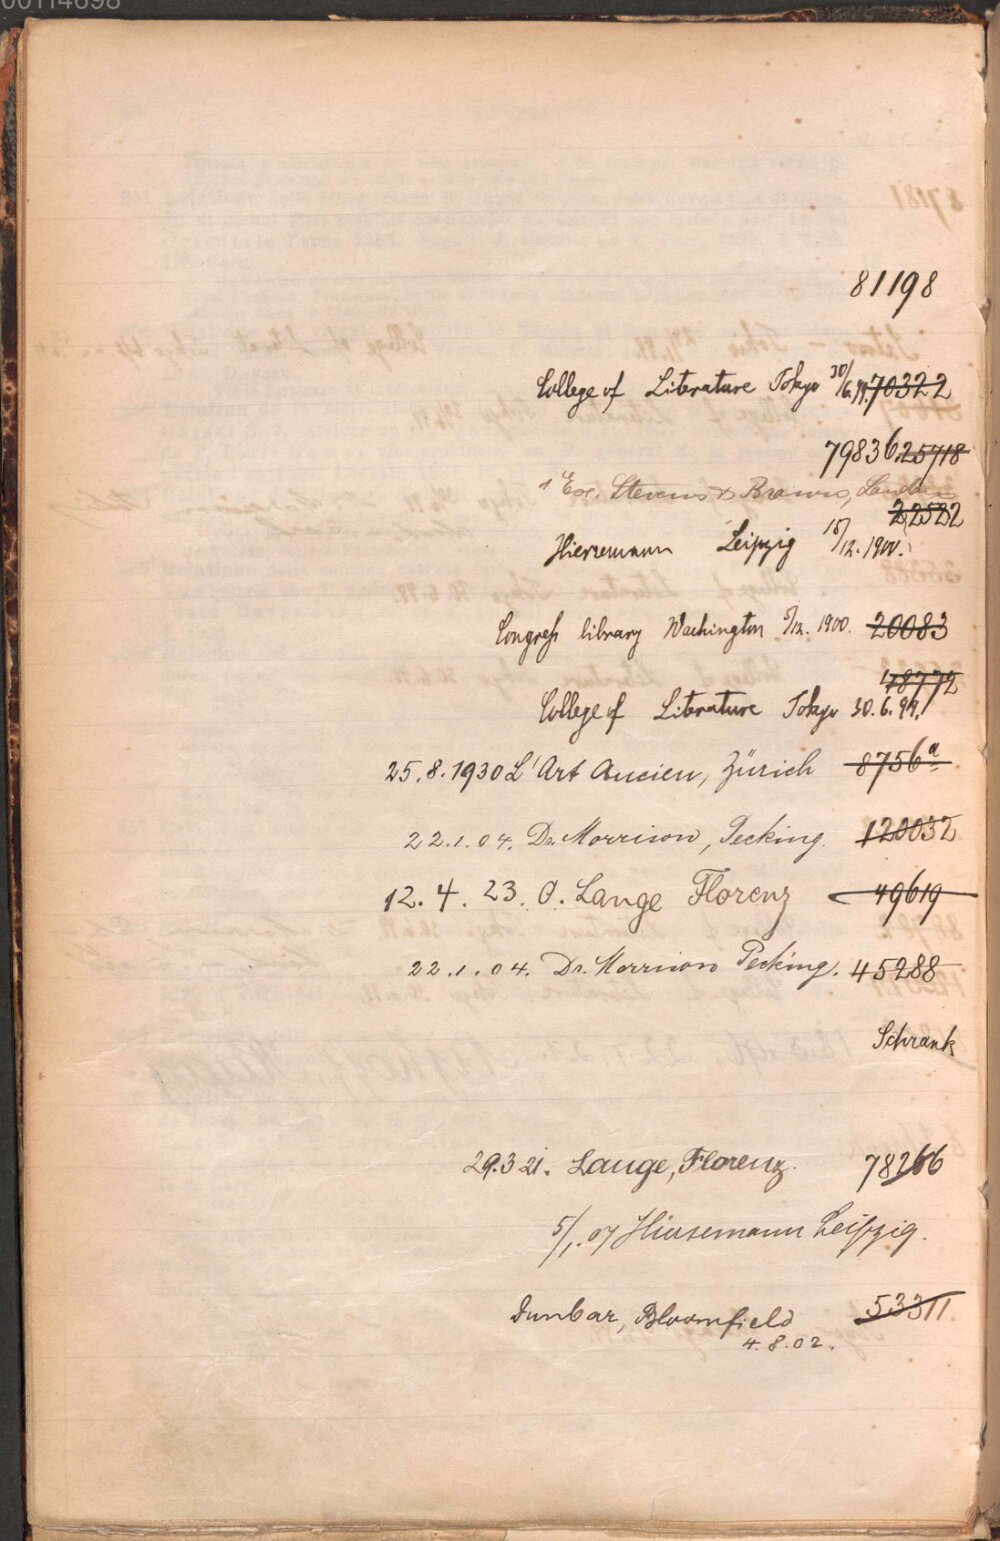 00114698
81198
College of Literature Tokyo 30/6.99. 70322
79836 25718
1 Ex. Stevens & Brown, London
22522
Hiersemann Leipzig 15/12. 1900.
Congress library Washington 5/12. 1900. 20083
48772
College of Literature Tokyo 30.6.99.
25.8.1930 L'Art Ancien, Zürich 8756a
22.1.04. Dr. Morrison, Pecking. 120032
12.4.23. O. Lange Florenz 49619
22.1.04. Dr. Morrison Pecking. 45288
Schrank
29.3 21. Lange, Florenz. 78266
5/1.07 Hiersemann Leipzig.
Dunbar, Bloomfield 53311
4.8.02.